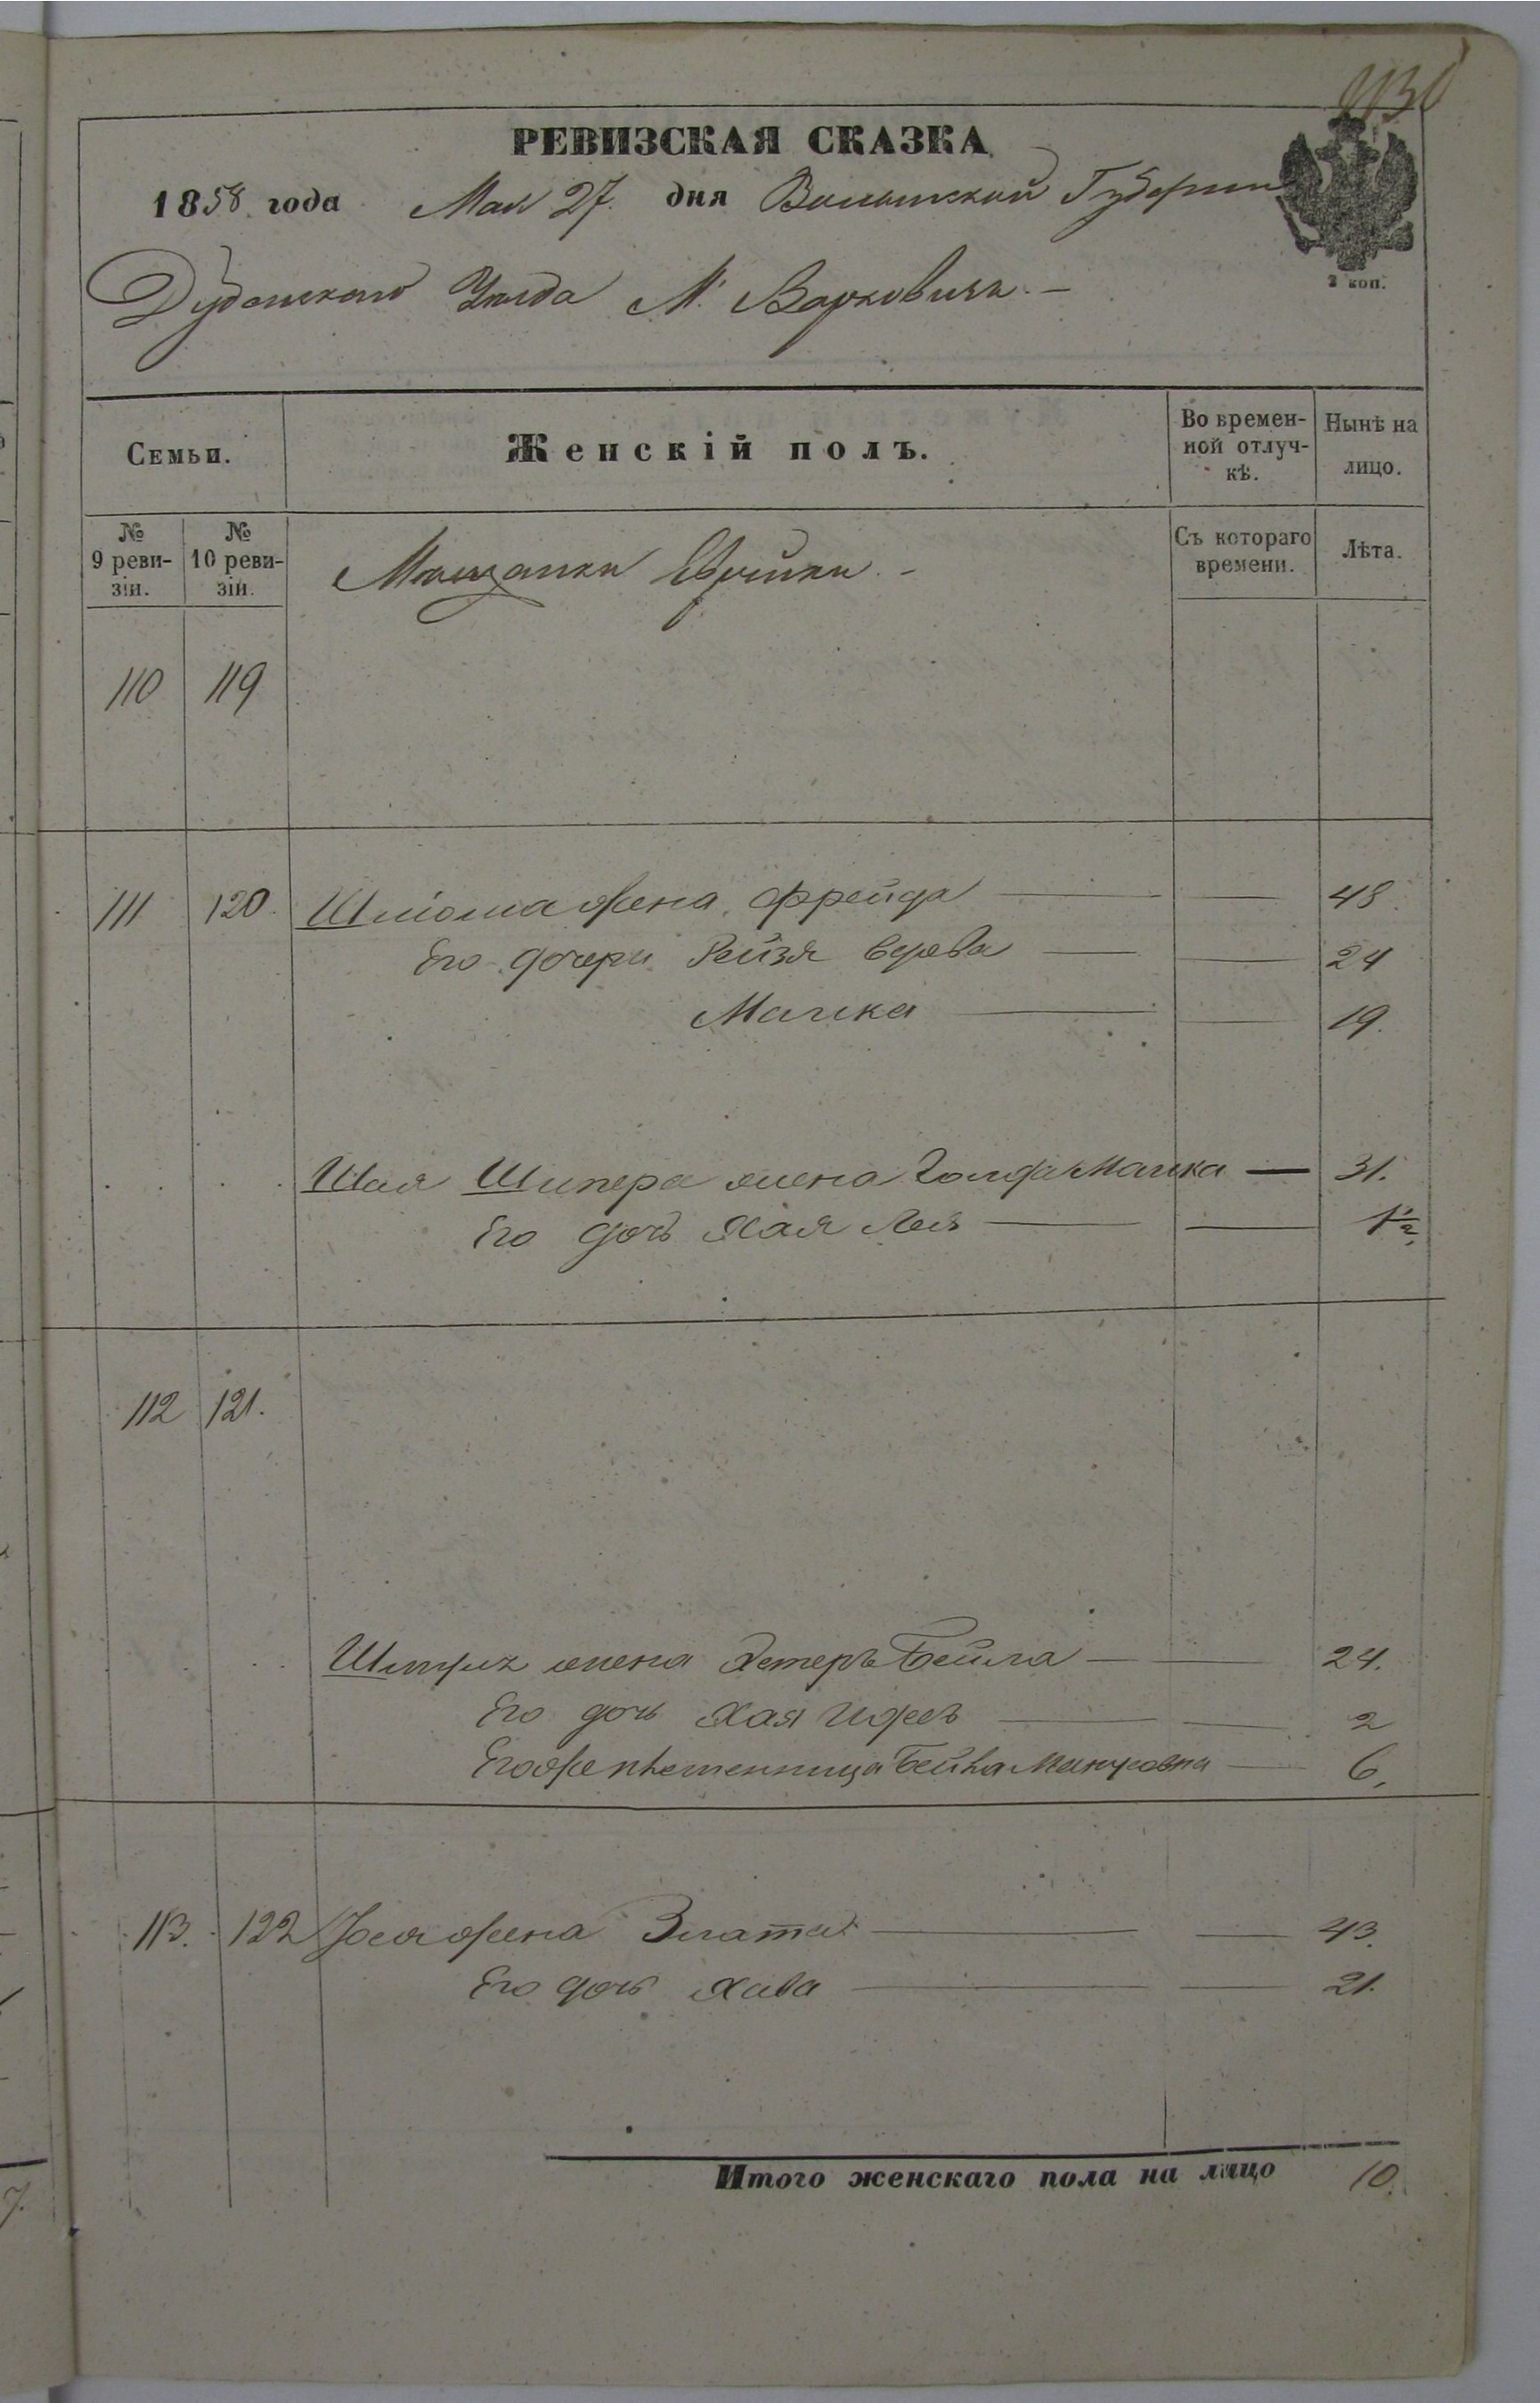 РЕВИЗСКАЯ СКАЗКА
1858 года Мая 27. дня Волынской Губернии
Дубенскаго Уезда М. Варковичь. –
2 коп.
Семьи.
Женскій полъ.
Во времен-
ной отлуч-
кѣ.
Нынѣ на
лицо.
№
9 реви-
зіи.
№
10 реви-
зіи.
Мещанки Еврейки. –
Съ котораго
времени.
Лѣта.
110 119
111 120 Шлиома жена Фрейда 48
Его дочери Рейзя вдова 24
Малка 19.
Шая Шпера жена Голда Малка 31.
Его дочь Хая Лея 1½
112 121.
жена Хетеръ Бейла 24.
Его дочь Хая 2
Егоже племенница Бейла 6.
113. 122 жена Злата 43.
Его дочь Хава 21.
Итого женскаго пола на лицо 10.